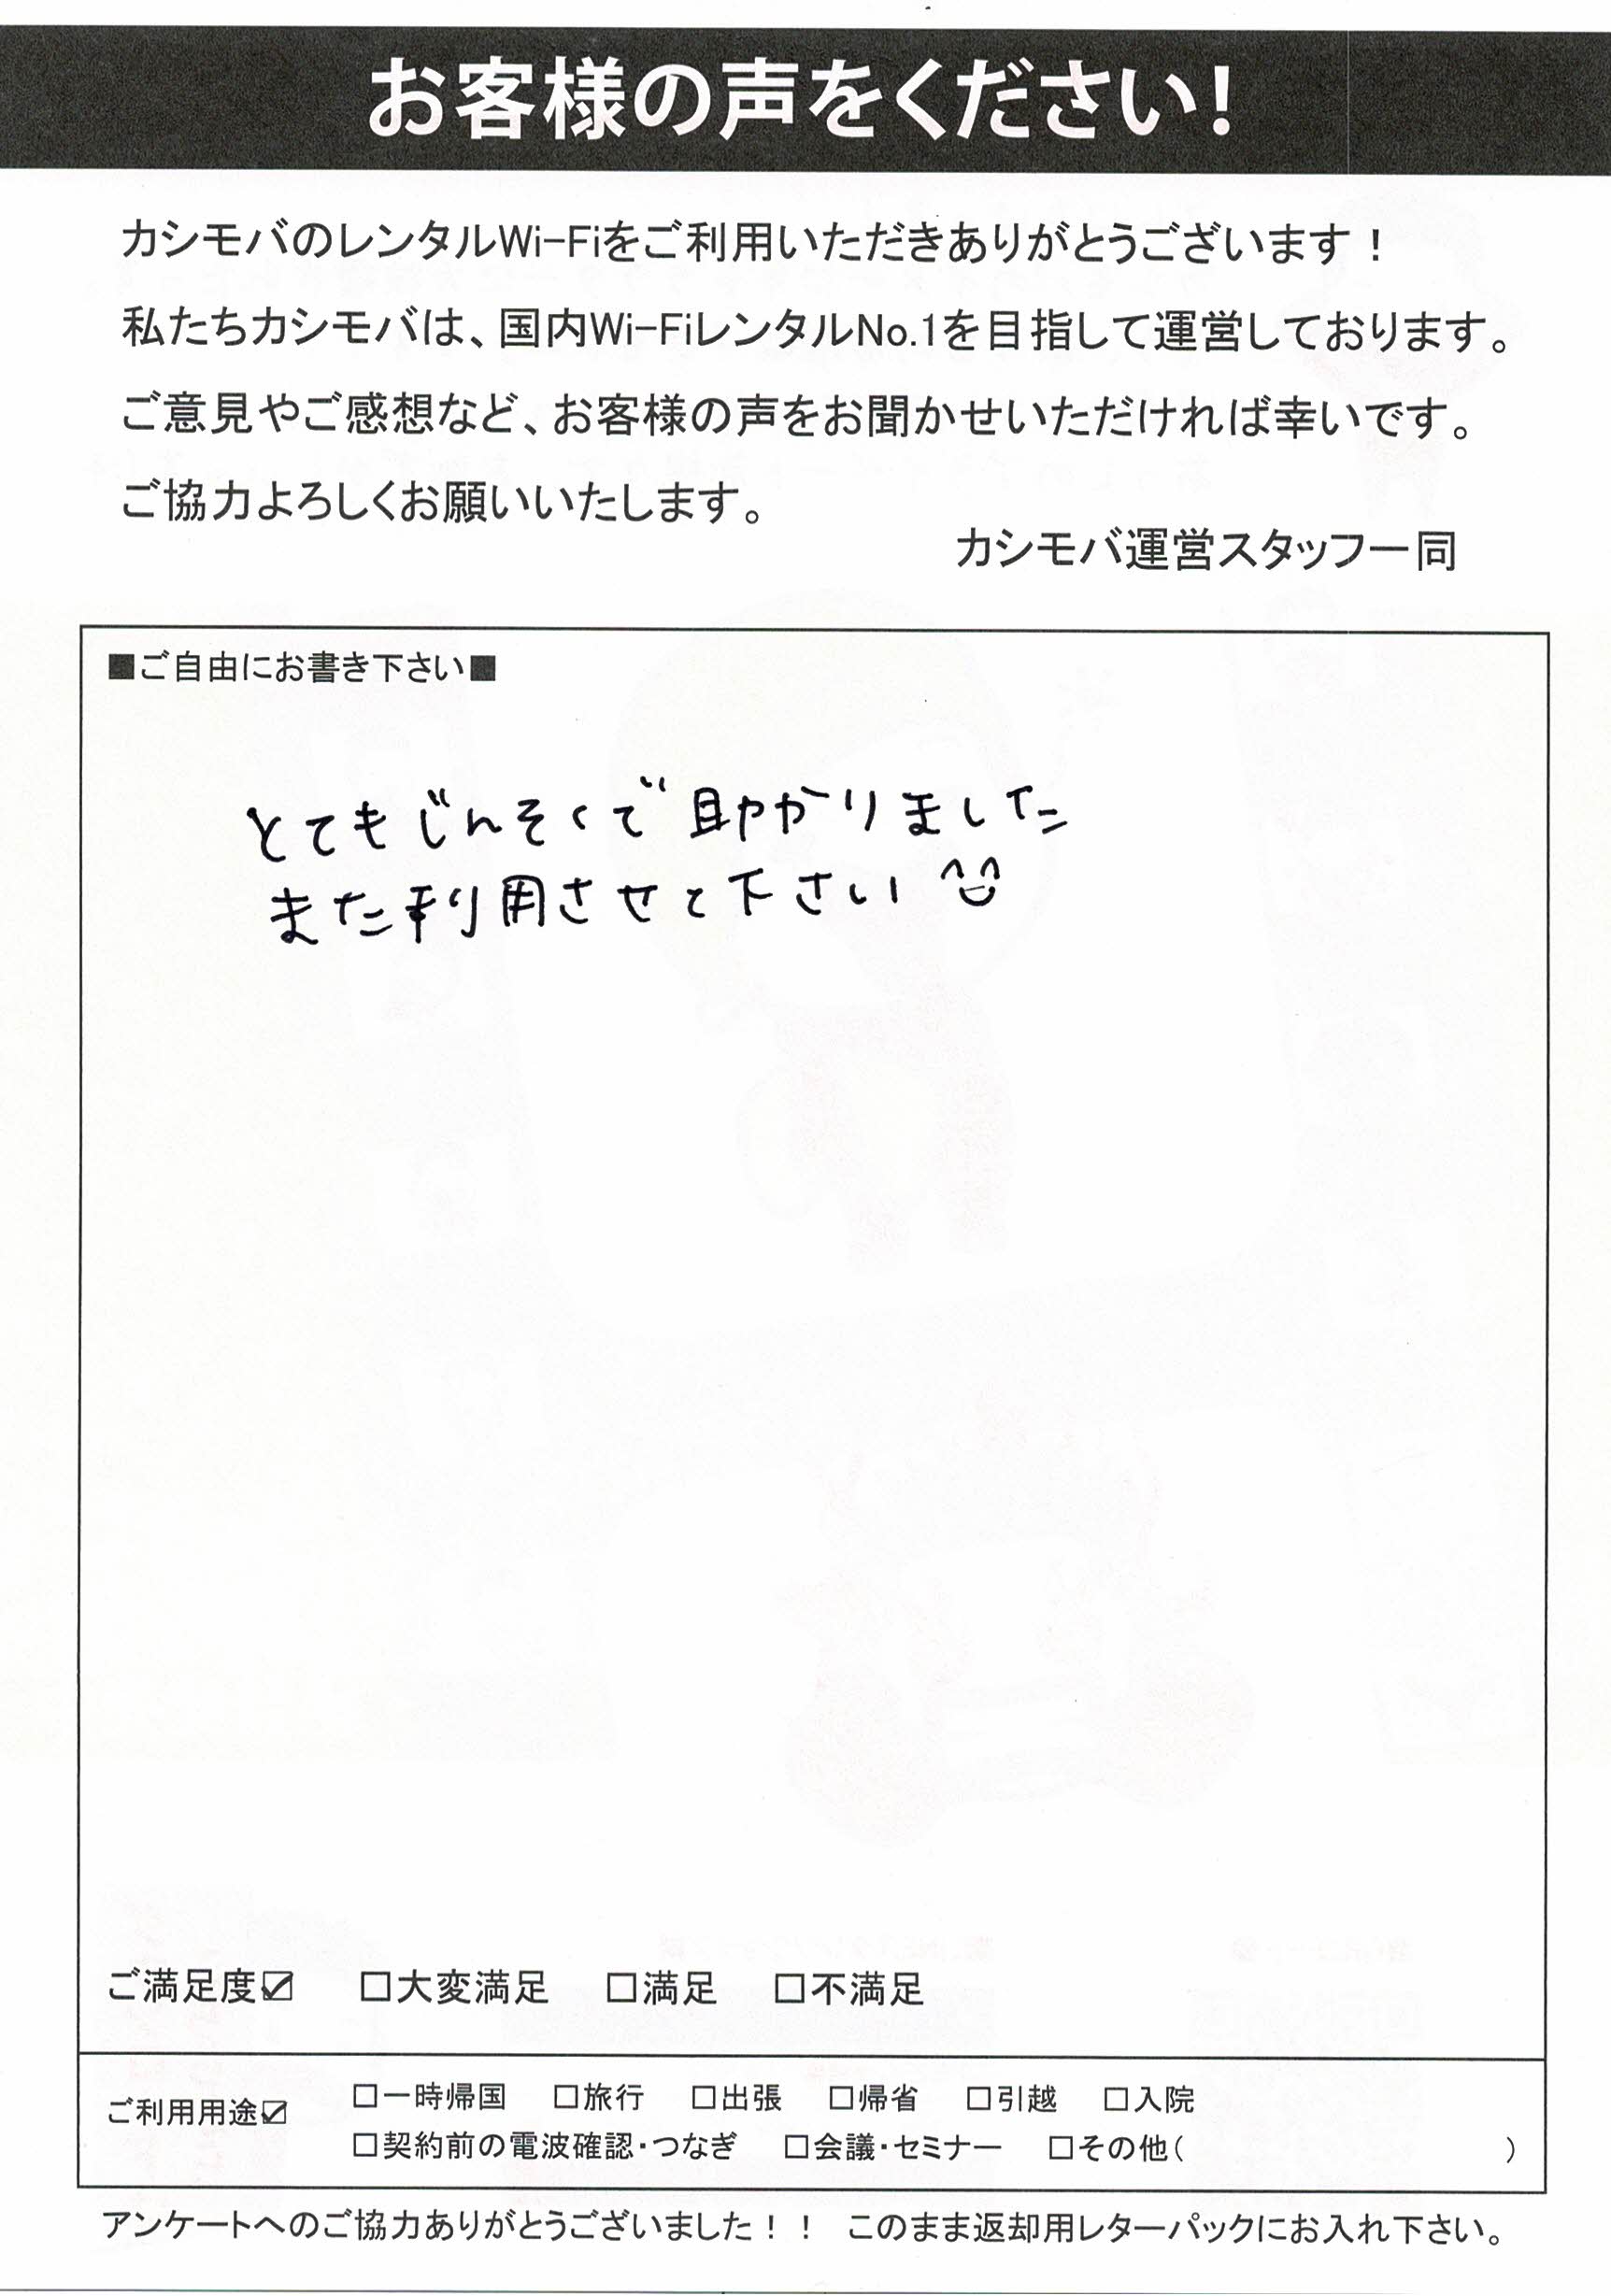 お客様の声をください!
カシモバのレンタルWi-Fiをご利用いただきありがとうございます!
私たちカシモバは、国内Wi-FiレンタルNo.1を目指して運営しております。
ご意見やご感想など、お客様の声をお聞かせいただければ幸いです。
ご協力よろしくお願いいたします。
カシモバ運営スタッフ一同
■ご自由にお書き下さい■
とてもじんそくで助かりました
また利用させて下さい ^^
ご満足度☑ □大変満足 □満足 □不満足
ご利用用途☑ □一時帰国 □旅行 □出張 □帰省 □引越 □入院
□契約前の電波確認・つなぎ □会議・セミナー □その他( )
アンケートへのご協力ありがとうございました!! このまま返却用レターパックにお入れ下さい。